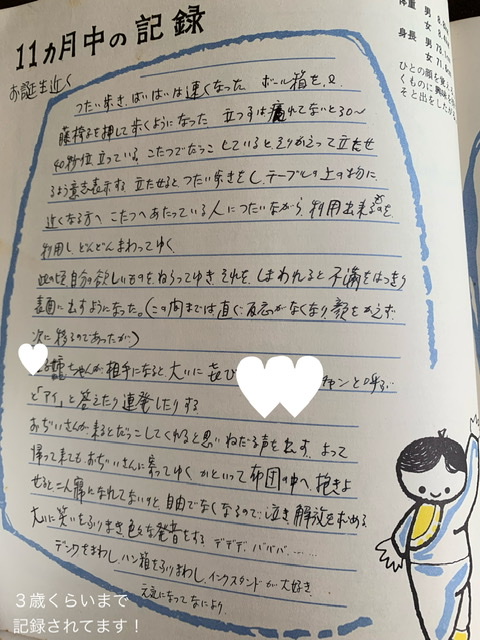 11ヵ月中の記録
お誕生近く
つたい歩き、ばいばいは速くなった ボール箱を、又
籐椅子を押して歩くようになった 立つ方は疲れてないと30〜
40秒位立っている、こたつでだっこしているとそりかえって立たせ
るよう意志表示する 立たせるとつたい歩きをし、テーブルの上の物に
近くなる方へ こたつへあたっている人につたいながら、利用出来るものを
利用し、どんどんまわってゆく
此の頃自分の欲しいものをねらってゆき、それを、しまわれると不満をはっきり
表面に出すようになった。(この間までは直ぐ反応がなくなり顔をかえず
次に移るのであったが)
ちゃんが相手になると大いに喜び
チャンと呼ぶ
と「アイ」と答えたり連発したりする
おぢいさんが来るとだっこしてくれると思いねだる声を出す、よって
帰って来てもおぢいさんに寄ってゆく かといって布団の中へ抱きよ
せると、二人寝になれてないせいか、自由でなくなるので、泣き解放を求める
大いに笑いをふりまき色々な発音をする デデデ、バババ……
デンクをまわし、ハン箱をふりまわし、インクスタンドが大好き…
元気になってなにより、
体重 男 8.
女 8.
身長 男 73.
女 71.
ひとの顔を覚え
くものに興味を
そと出をしたが
3歳くらいまで
記録されてます!